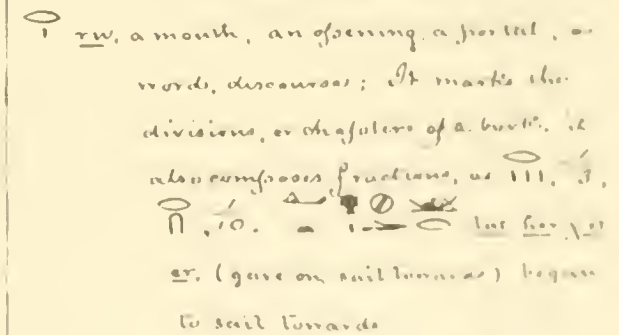 𓂋𓏤 rw, a mouth, an opening, a portal,
words, discourses; It marks the
divisions, or chapters of a book. it
also composes fractions, as 𓂋 III, 3,
𓂋 ∩, 10.
er. (gave on sail towards) began
to sail towards